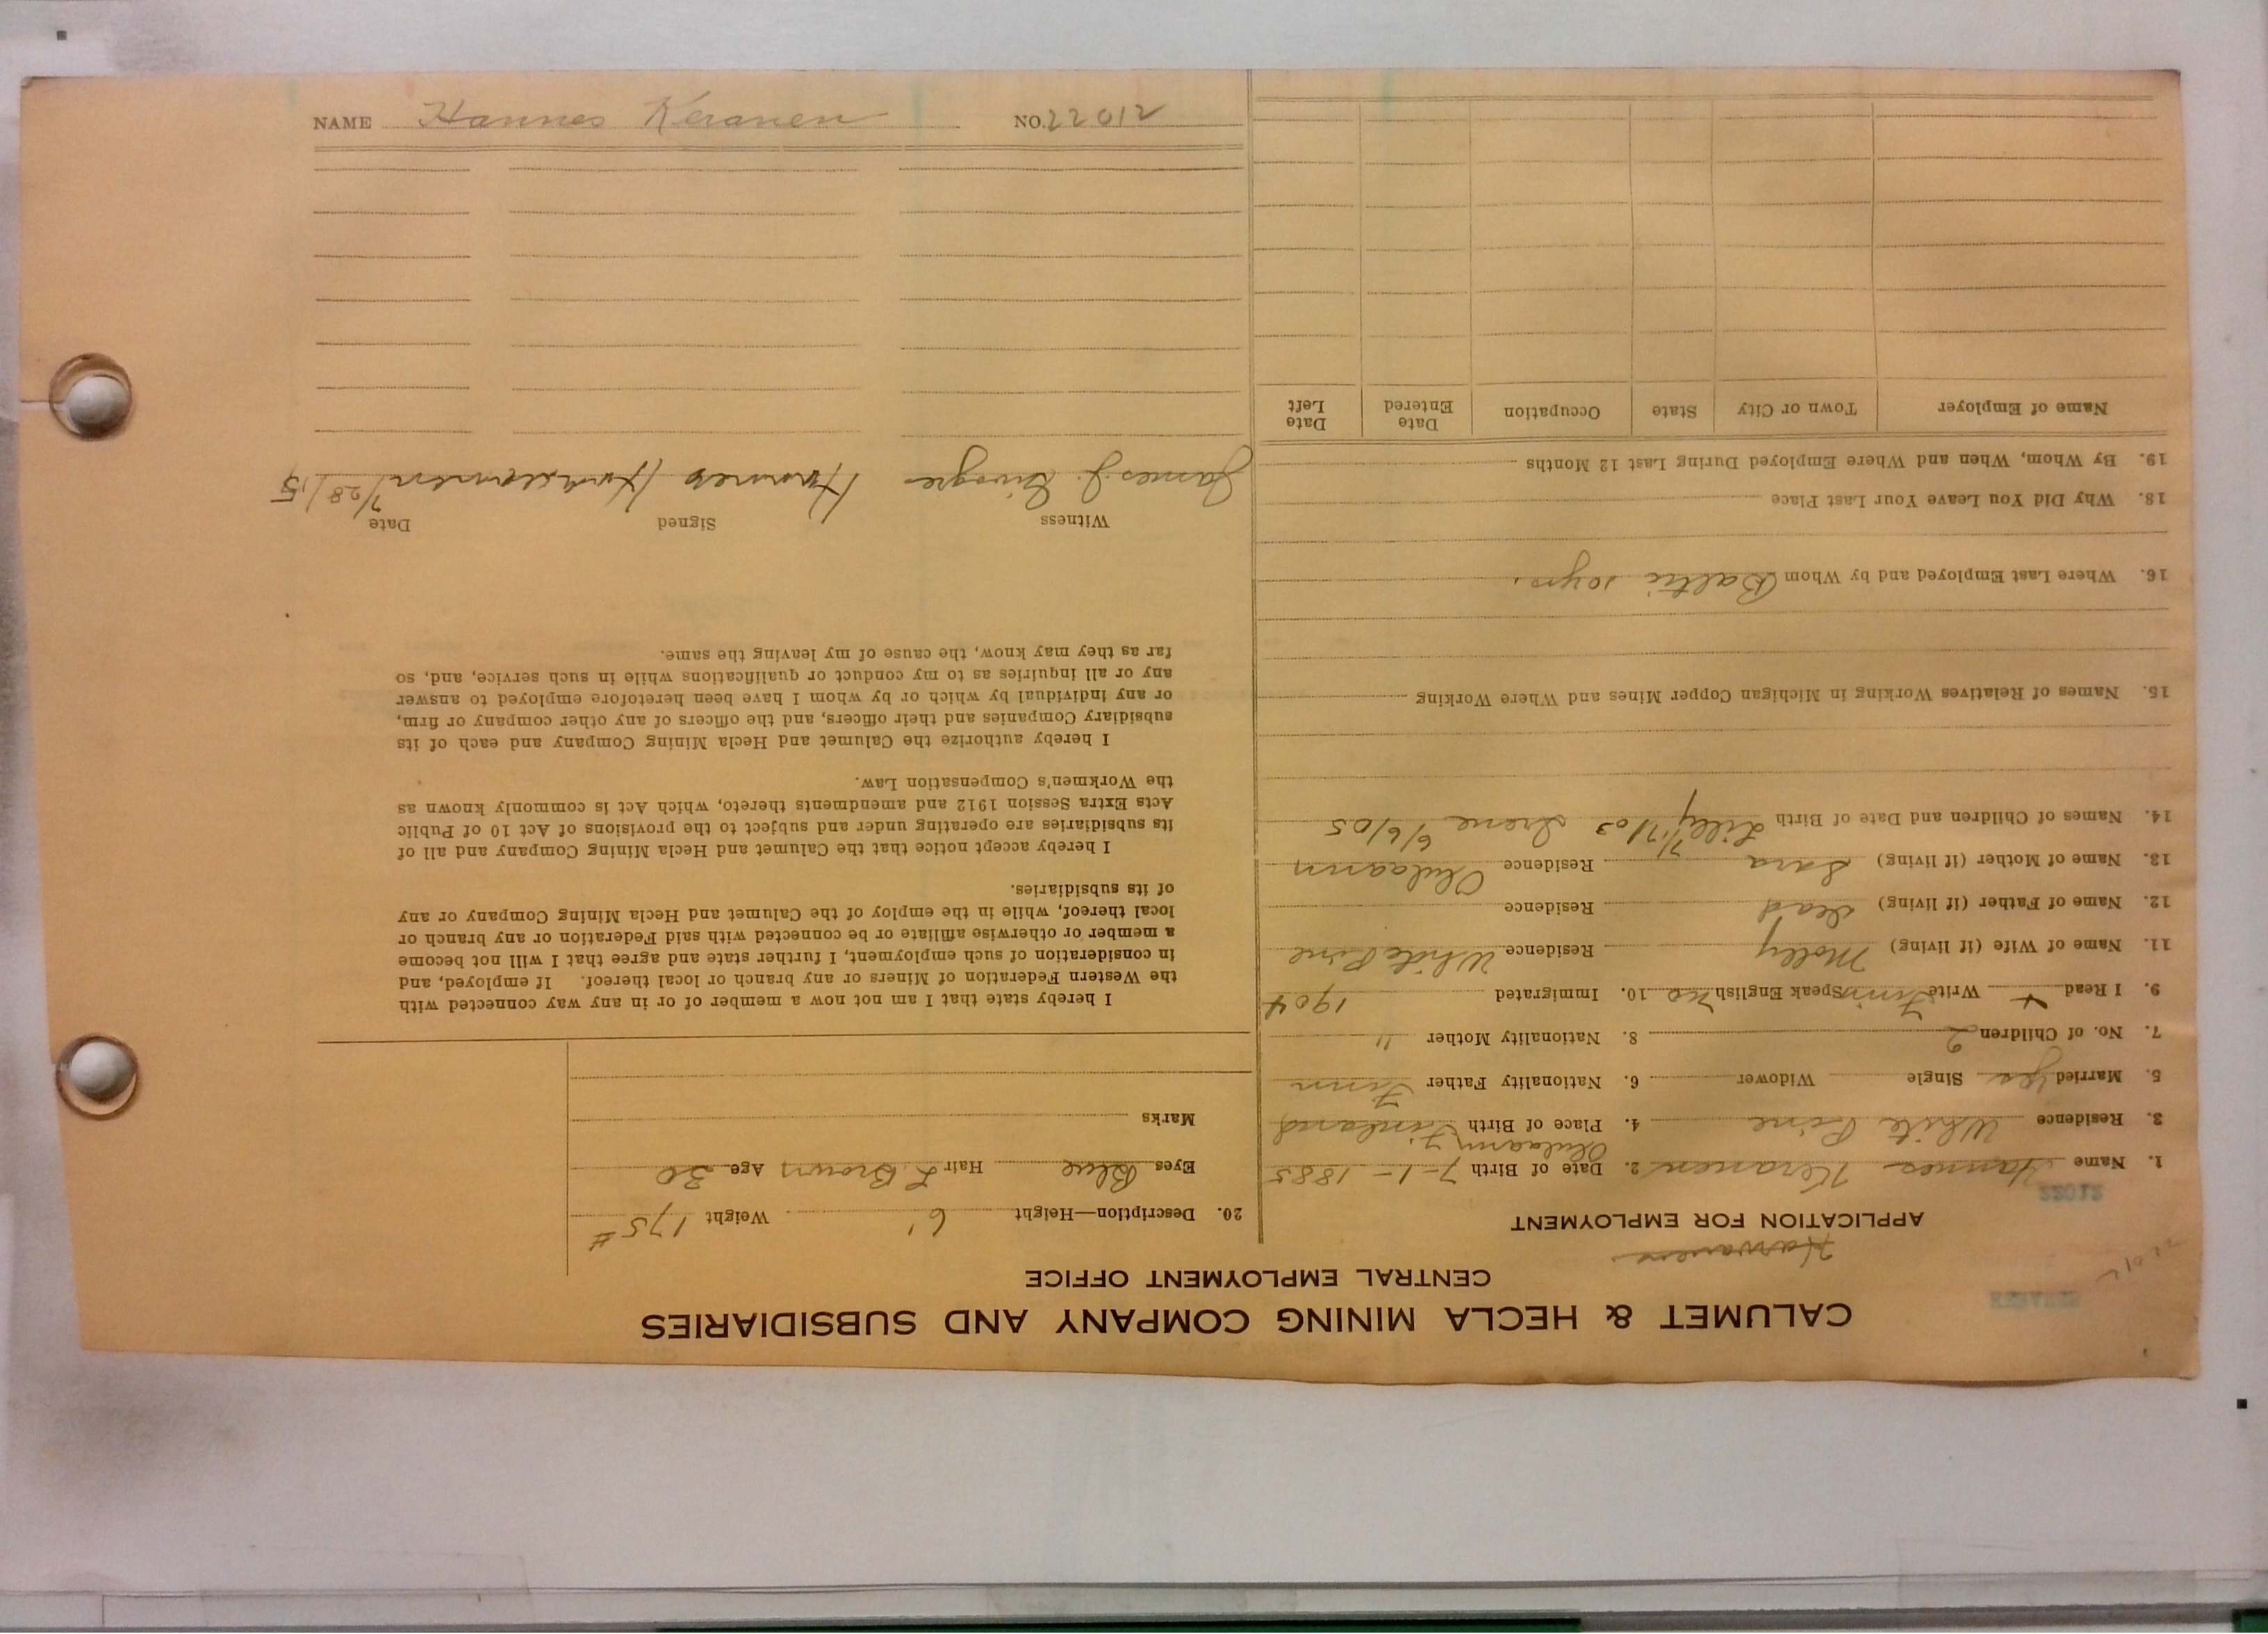 CALUMET & HECLA MINING COMPANY AND SUBSIDIARIES
CENTRAL EMPLOYMENT OFFICE
APPLICATION FOR EMPLOYMENT
1. Name Hannes Keranen 2. Date of Birth 7-1-1885
3. Residence White Pine 4. Place of Birth Finland
5. Married yes Single Widower 6. Nationality Father Finn
7. No. of Children 2 8. Nationality Mother "
9. I Read Write Finn Speak English no 10. Immigrated 1904
11. Name of Wife (if living) Molly Residence White Pine
12. Name of Father (if living) Dead Residence
13. Name of Mother (if living) Sara Residence
14. Names of Children and Date of Birth Lilly 7/17/03 Irene 6/6/05
15. Names of Relatives Working in Michigan Copper Mines and Where Working
16. Where Last Employed and by Whom Baltic 10 yrs.
18. Why Did You Leave Your Last Place
19. By Whom, When and Where Employed During Last 12 Months
Name of Employer Town or City State Occupation Date Entered Date Left
20. Description—Height 6' Weight 175#
Eyes Blue Hair L. Brown Age 30
Marks
I hereby state that I am not now a member of or in any way connected with
the Western Federation of Miners or any branch or local thereof. If employed, and
in consideration of such employment, I further state and agree that I will not become
a member or otherwise affiliate or be connected with said Federation or any branch or
local thereof, while in the employ of the Calumet and Hecla Mining Company or any
of its subsidiaries.
I hereby accept notice that the Calumet and Hecla Mining Company and all of
its subsidiaries are operating under and subject to the provisions of Act 10 of Public
Acts Extra Session 1912 and amendments thereto, which Act is commonly known as
the Workmen's Compensation Law.
I hereby authorize the Calumet and Hecla Mining Company and each of its
subsidiary Companies and their officers, and the officers of any other company or firm,
or any individual by which or by whom I have been heretofore employed to answer
any or all inquiries as to my conduct or qualifications while in such service, and, so
far as they may know, the cause of my leaving the same.
Witness Signed Date
James J. Hannes 7/28/15
NAME Hannes Keranen NO. 22012